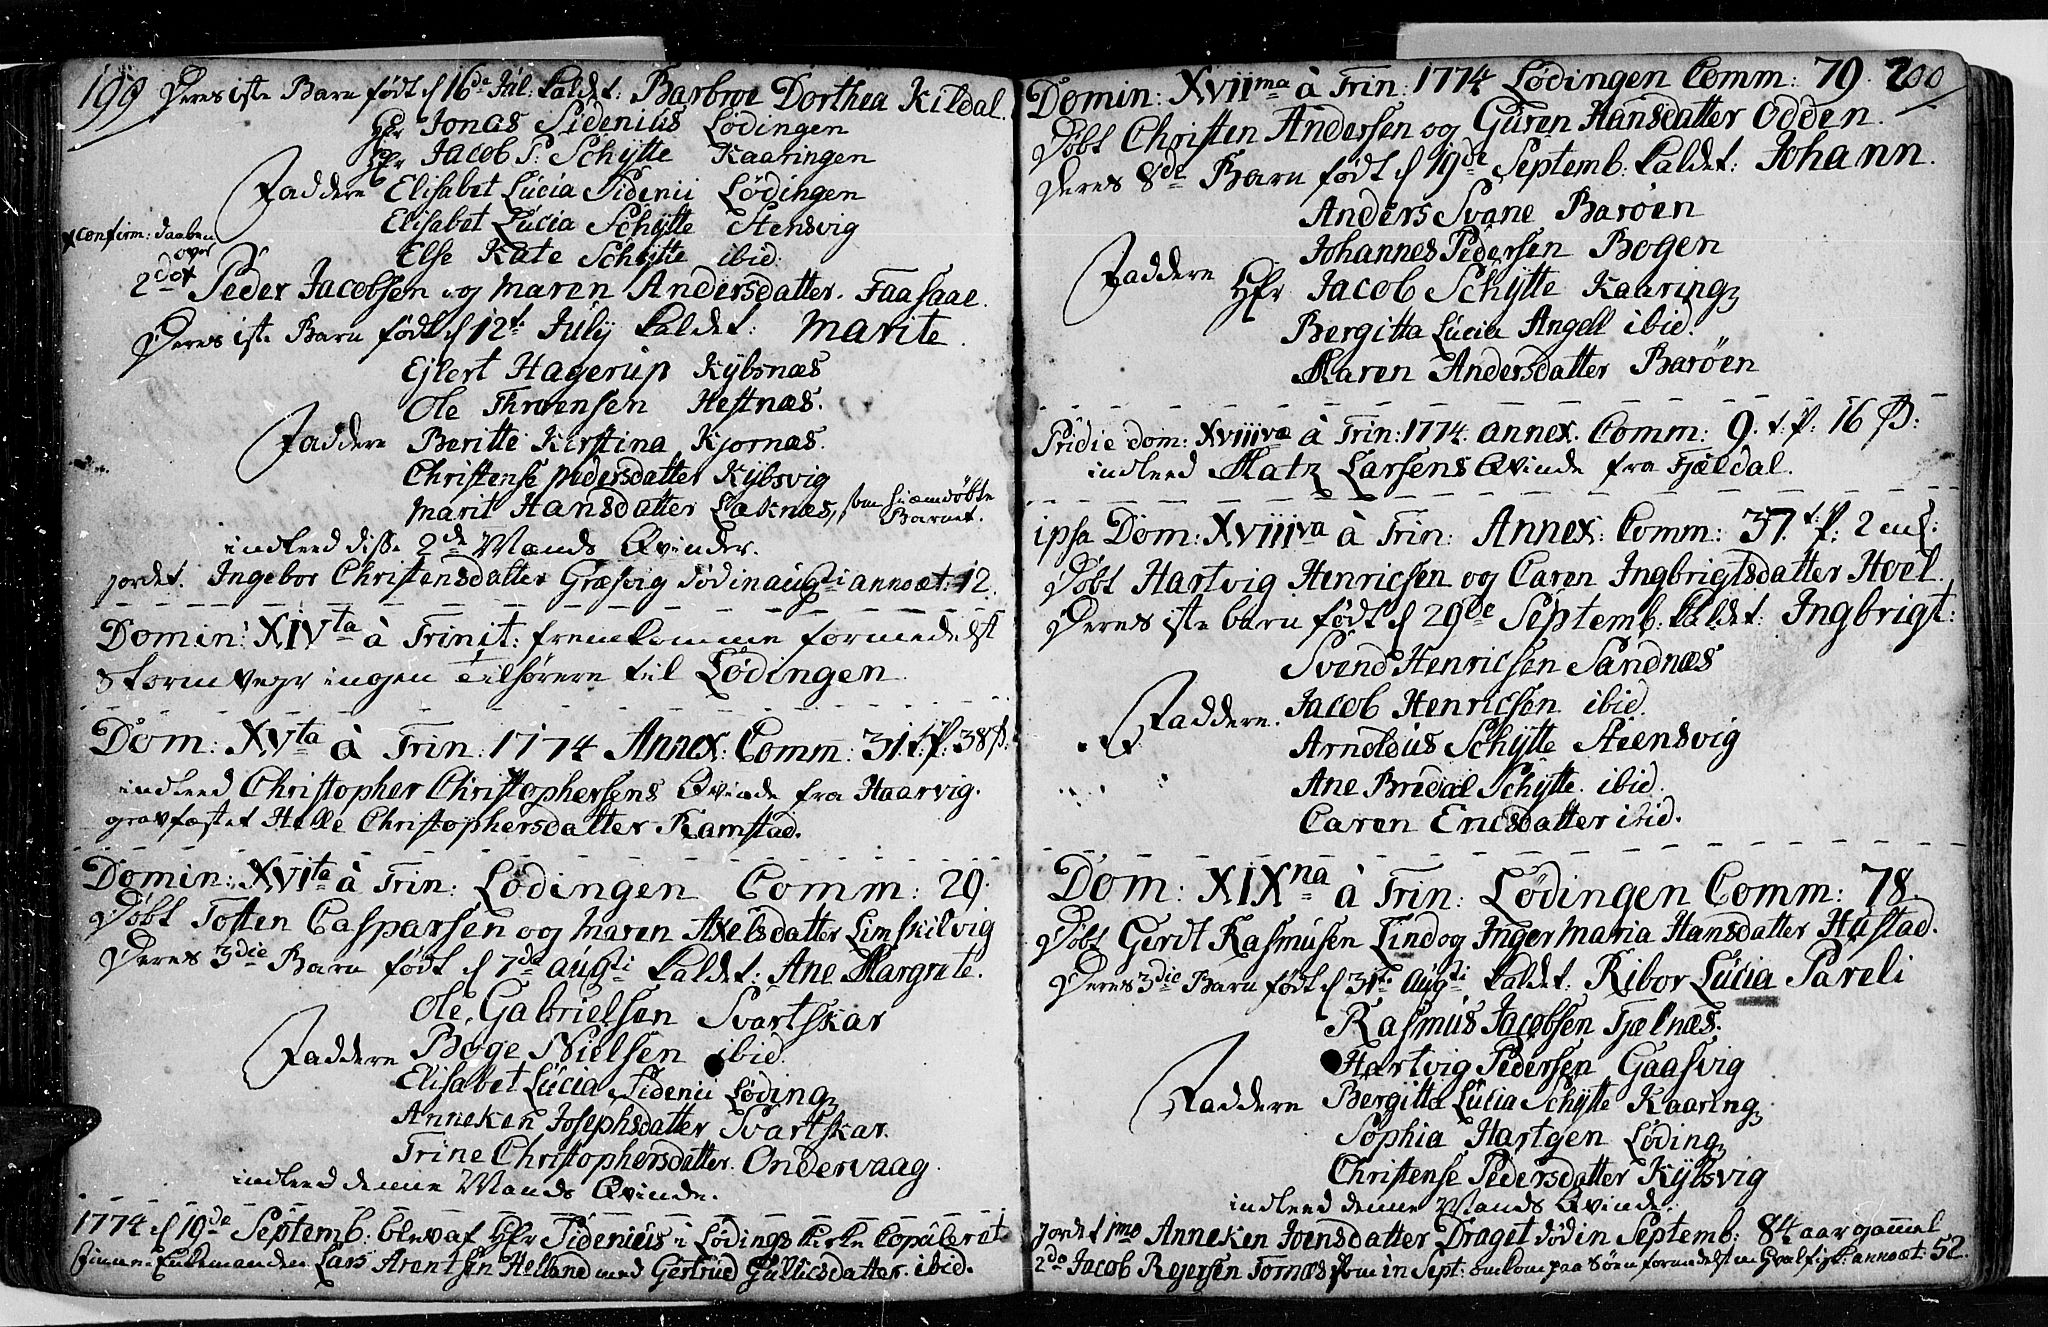 199 Deres 1ste Barn født d 16de Jul. kaldet: Barbroe Dorthea Kildal.
Hr Jonas Sidenius Lødingen
Hr Jacob P: Schÿtte Kaaringen
Faddere Elisabet Lucia Sidenii Lødingen
Elisabet Lucia Schÿtte Stensvig
xconfirm: Daaben over
Else Kate Schÿtte ibid.
2dox Peder Jacobsen og Maren Andersdatter. Faasaae.
Deres 1ste Barn født d 12t July kaldet: Marite.
Ejlert Hagerup Kÿbsnæs
Ole Thronsen Hestnæs.
Faddere Beritte Kirstina Kjornæs.
Christense Pedersdatter Kÿbsvig
Marit Hansdatter Laknæs, som hiemdøbte Barnet.
indleed disse 2de Mands Qvinder.
jordet. Ingebor Christensdatter Græsvig død in augsti anno æt: 12.
Domin: XIVta à Trinit: fremkomme formedelst
Storm vejr ingen Tilhørere til Lødingen.
Dom: XVta à Trin: 1774 Annex: Comm: 31 t. p: 38 ß:
indleed Christopher Christophersens Qvinde fra Haarvig.
gravfæstet Helle Christophersdatter Ramstad.
Domin: XVIta à Trin: Lødingen Comm: 29.
Døbt Tosten Casparsen og Maren Axelsdatter Limskilvig
Deres 3die Barn født d 7de augsti kaldet: Ane Margrete.
Ole Gabrielsen Svartskar
Faddere Boge Nielsen ibid.
Elisabet Lucia Sidenii Løding
Anneken Josephsdatter Svartskar.
Trine Christophersdatter. Ondervaag.
indleed denne Mands Qvinde.
1774 d 19de Septemb: blev af Hr Sidenius i Lødings Kirke Copuleret
Enkemanden Lars Arentsen Helland med Giertrud Gullicsdatter. ibid.
Domin: XVIIma à Trin: 1774 Lødingen Comm: 79. 200
Døbt Christen Andersen og Guren Hansdatter Odden.
Deres 8de Barn født d 19de Septemb. kaldet: Johann.
Anders Svane Barøen
Johannes Pedersen Bogen
Faddere Hr Jacob Schÿtte Kaaring
Bergitta Lucia Angell ibid.
Maren Andersdatter Barøen
Pridie dom: XVIIIvæ à Trin: 1774. annex. Comm: 9. t. p: 16 ß:
indleed Matz Larsens Qvinde fra Fjeldal.
ipsa Dom: XVIIIva à Trin: Annex: Comm: 37. t. p:
Døbt Hartvig Henricsen og Caren Ingbrigtsdatter Hoel.
Deres 1ste barn født d 29de Septemb. kaldet: Ingbrigt:
Svend Henricsen Sandnæs
Faddere. Jacob Henricsen ibid.
Arnoldus Schÿtte Steensvig
Ane Bredal Schÿtte. ibid.
Caren Ericsdatter ibid.
Dom: XIXna à Trin: Lødingen Comm: 78.
Døbt Gerdt Rasmusen Lind og Inger Maria Hansdatter Hustad.
Deres 3die Barn født d 31te augsti kaldet. Ribor Lucia Pareli
Rasmus Jacobsen Fjælnæs.
Hartvig Pedersen Gaasvig
Faddere Bergitta Lucia Schÿtte Kaaring
Sophia Hartgen Løding
Christense Pedersdatter Kÿbsvig
indleed denne Mands Qvinde.
jordet 1mo Anneken Joensdatter Draget død in Septemb: 84 aar gammel
2do Jacob Rejersen Tornæs som in Sept: omkom paa Søen formedelst en Hvalfisk: anno æt: 52.